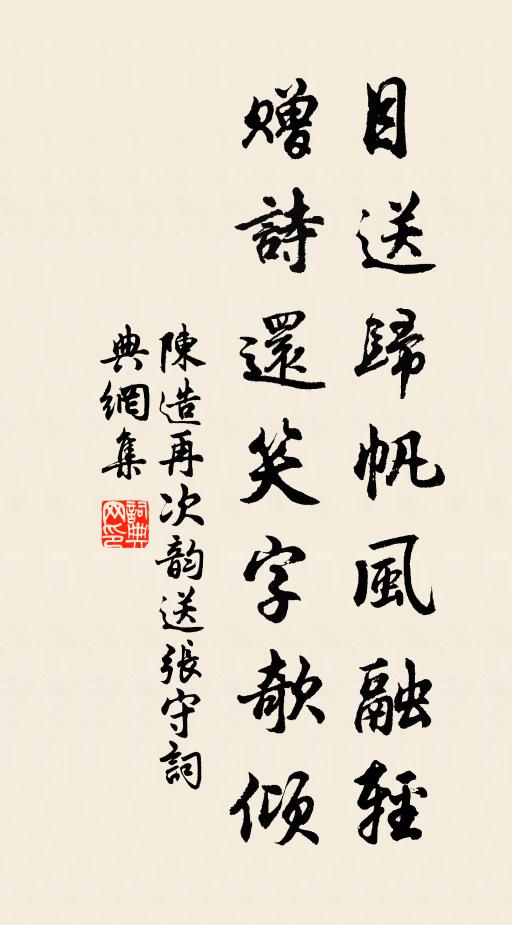 目送歸帆風融輕
贈詩還笑字欹傾
陳造再次韵送張守詞
典網集
詞典
网印